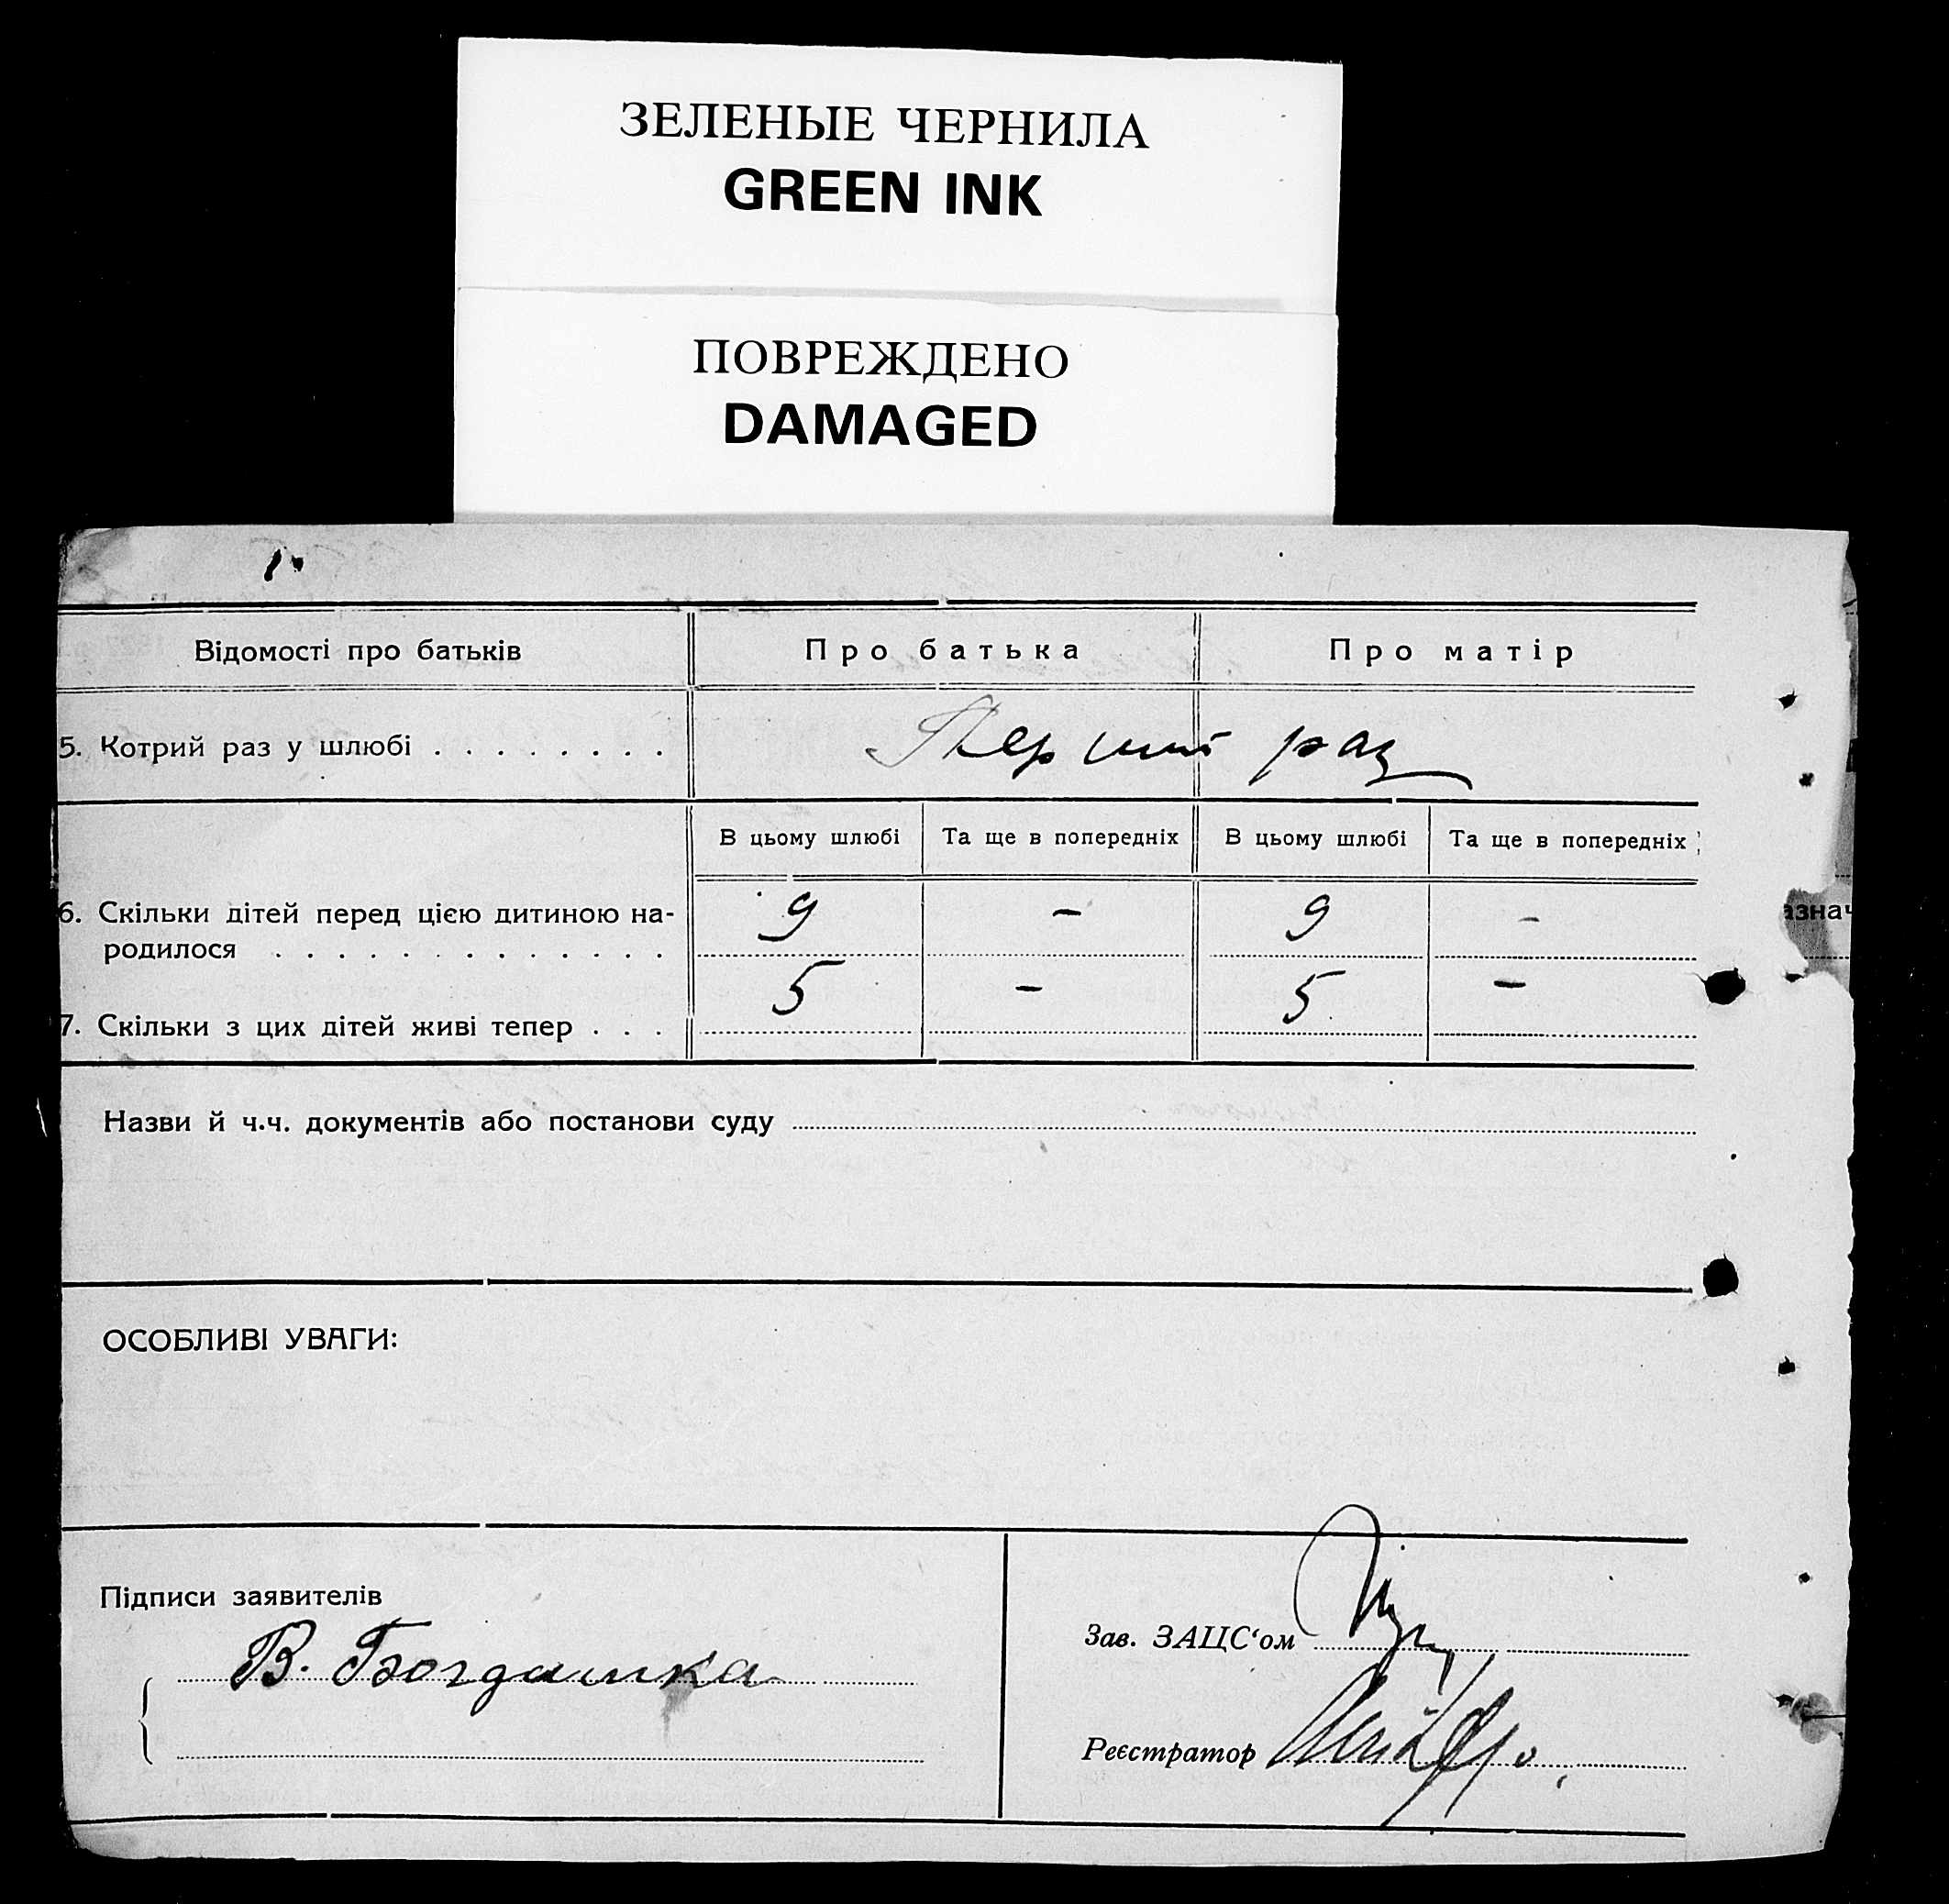 ЗЕЛЕНЫЕ ЧЕРНИЛА
GREEN INK
ПОВРЕЖДЕНО
DAMAGED
Відомості про батьків Про батька Про матір
5. Котрий раз у шлюбі . . . . . . . . Перший раз
В цьому шлюбі Та ще в попередніх В цьому шлюбі Та ще в попередніх
6. Скільки дітей перед цією дитиною на-
родилося . . . . . . . . . . . . . 9 – 9 –
7. Скільки з цих дітей живі тепер . . . 5 – 5 –
азнач
Назви й ч.ч. документів або постанови суду
ОСОБЛИВІ УВАГИ:
Підписи заявителів
В. Богданка
Зав. ЗАЦС‘ом
Реєстратор